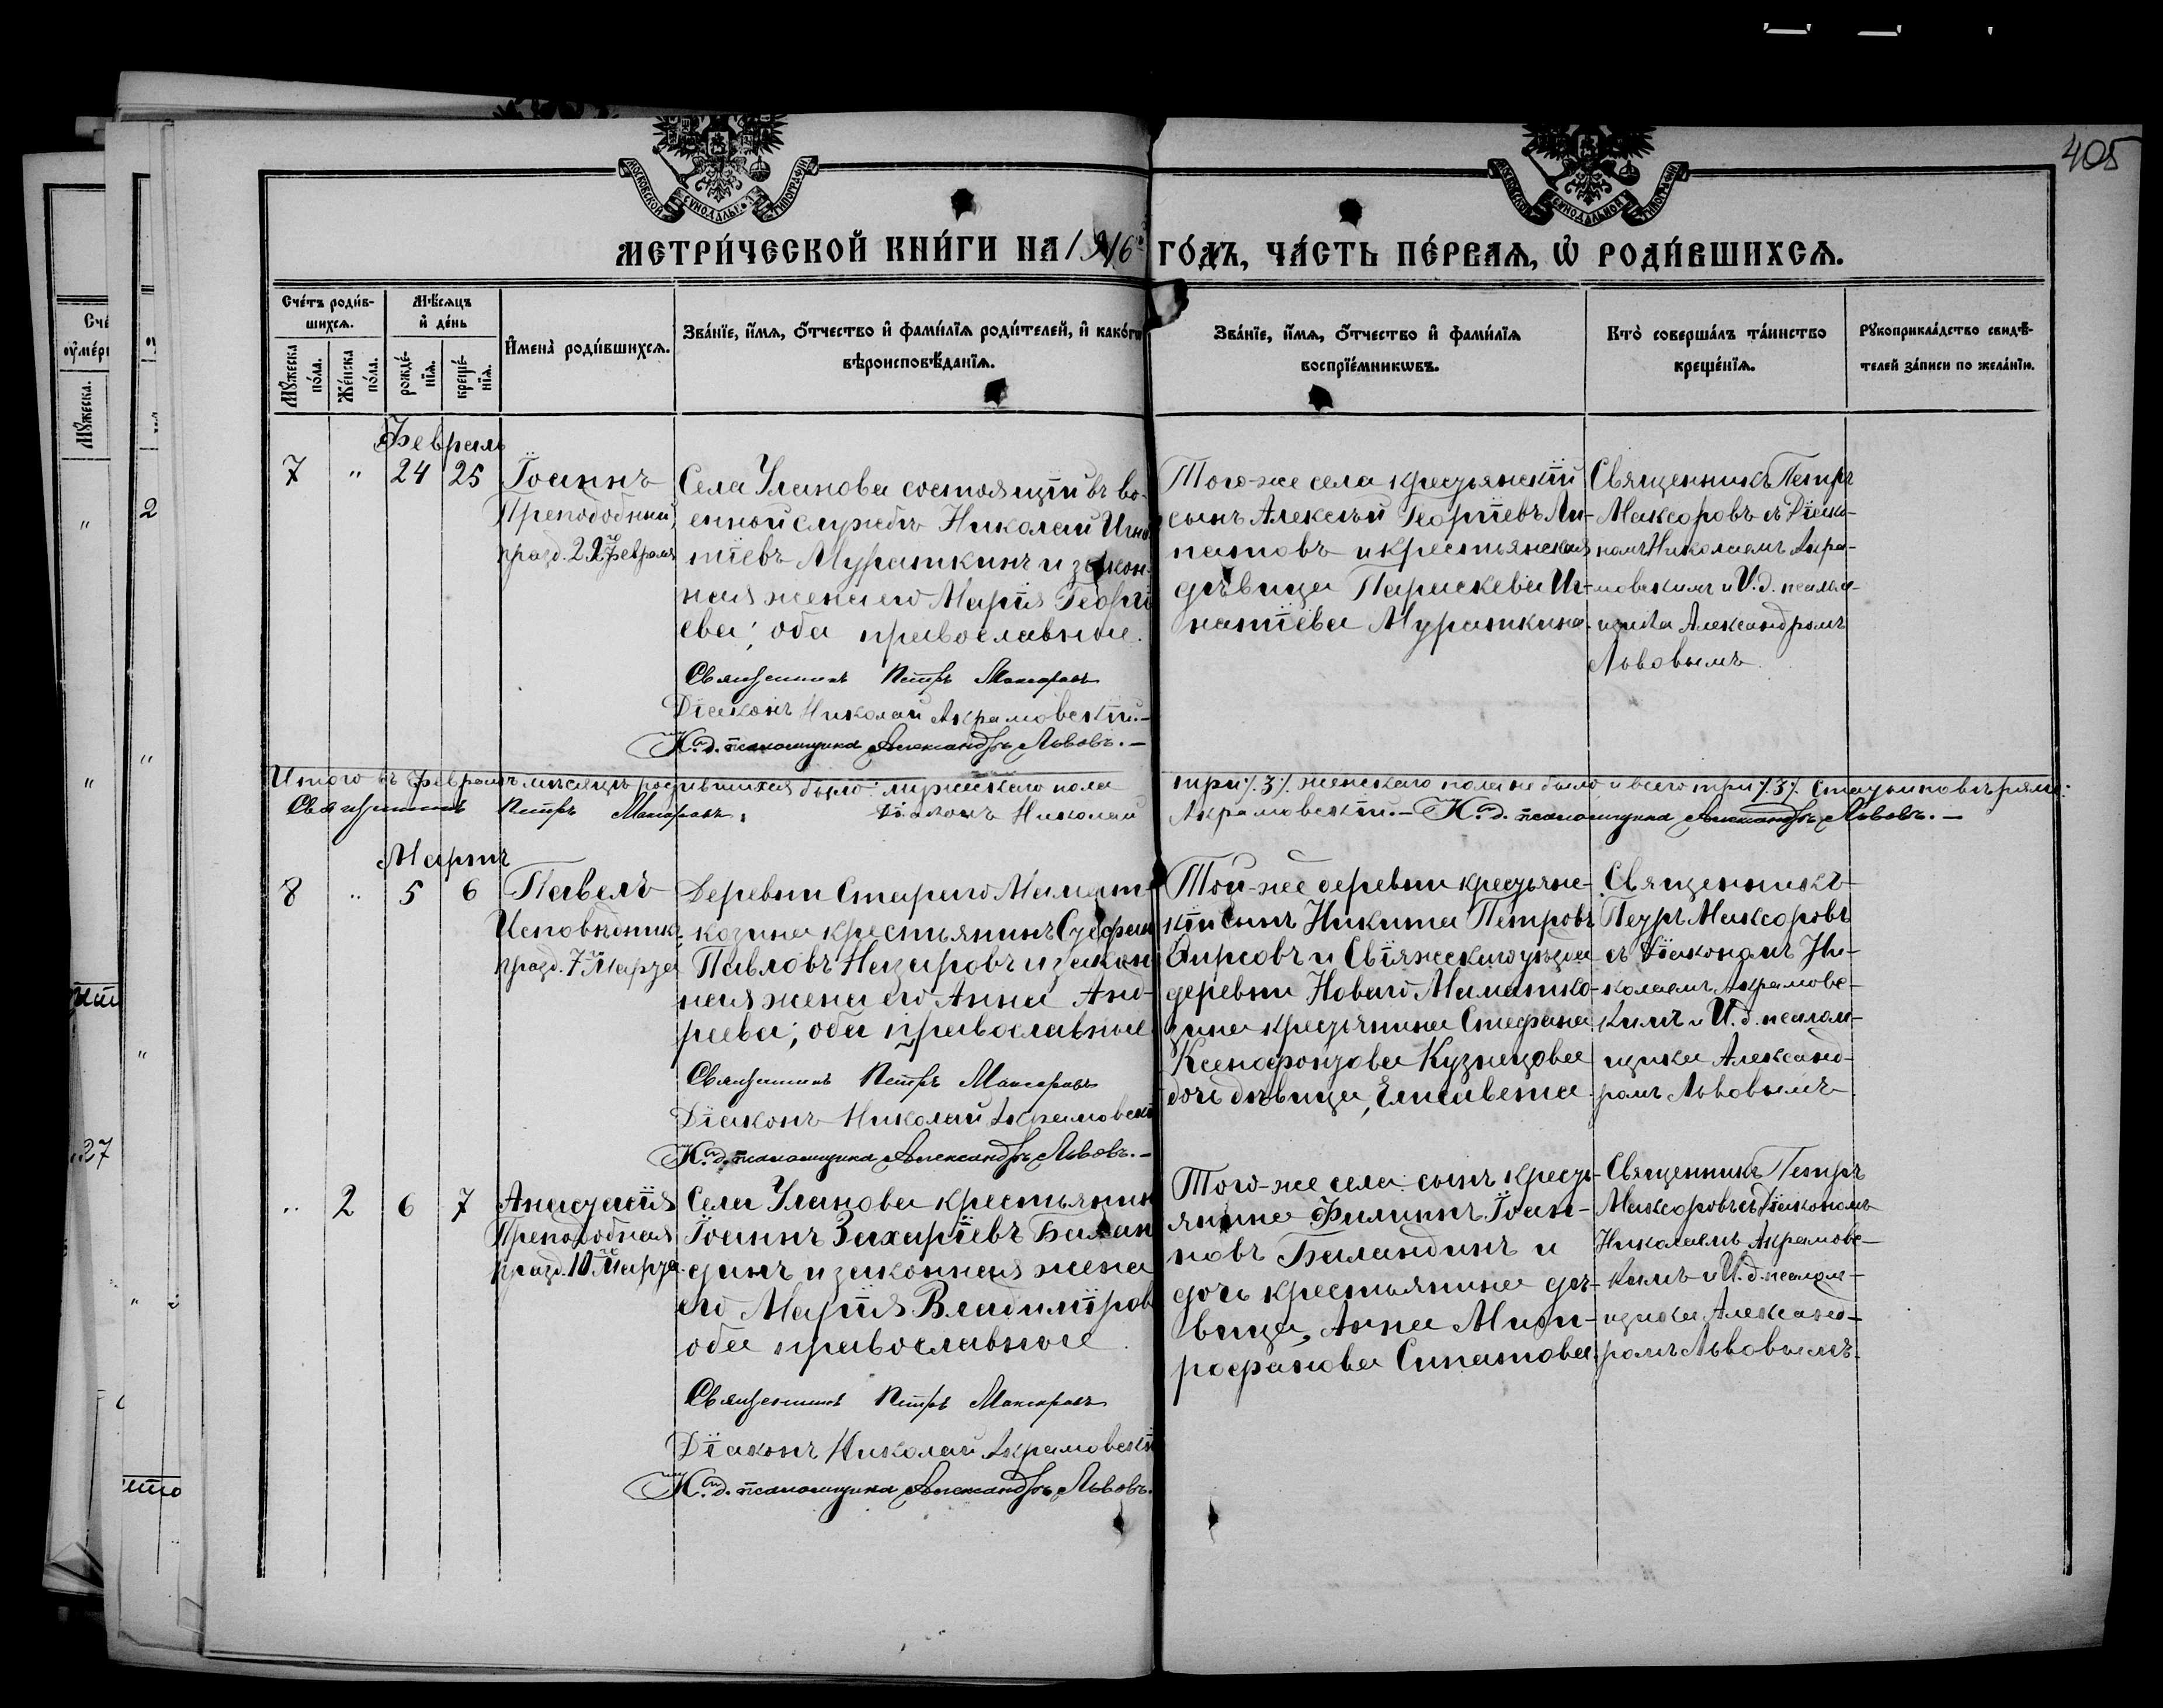 405
МОСКОВСКОЙ СѴНОДАЛЬНОЙ ТИПОГРАФІИ
МОСКОВСКОЙ СѴНОДАЛЬНОЙ ТИПОГРАФІИ
МЕТРИ́ЧЕСКОЙ КНИ́ГИ НА 1916 й ГО́ДЪ, ЧА́СТЬ ПЕ́РВАѦ, Ѡ҆ РОДИ́ВШИХСѦ.
Сче́тъ роди́в-
шихсѧ.
Мꙋ́жеска
по́ла.
Же́нска
по́ла.
Мѣ́сѧцъ
и҆ де́нь
рожде́-
нїѧ.
креще́-
нїѧ.
И҆мена̀ роди́вшихсѧ.
Зва́нїе, и҆́мѧ, ѻ҆́тчество и҆ фами́лїѧ роди́телей, и҆ како́гѡ
вѣроисповѣ́данїѧ.
Зва́нїе, и҆́мѧ, ѻ҆́тчество и҆ фами́лїѧ
воспрїе́мникѡвъ.
Кто̀ соверша́лъ та́инство
креще́нїѧ.
Рꙋкоприкла́дство свидѣ́-
телей за́писи по жела́нїю.
Февраль
7 " 24 25
Іоаннъ
Преподобный
празд. 29 Февраля
Села Уланова состоящій въ во-
енной службѣ Николай Игна
тіевъ Мураткинъ и закон-
ная жена его Марія Георгі
ева; оба православные.
Священникъ Петръ Максоровъ
Діаконъ Николай Акрамовскій.-
И. д. псаломщика Александръ Львовъ.-
Того-же села крестьянскій
сынъ Алексѣй Георгіевъ Ли-
патовъ и крестьянская
дѣвица Параскева Иг-
натіева Мураткина.
Священникъ Петръ
Максоровъ съ Діако-
номъ Николаемъ Акра-
мовскимъ и И. д. псалом-
щика Александромъ
Львовымъ.
Итого въ февралѣ мѣсяцѣ родившихся было: мужескаго пола три ٪ 3 ٪ женскаго пола не было и всего три ٪ 3 ٪
Священникъ Петръ Максоровъ, Діаконъ Николай Акрамовскій.- И. д. псаломщика Александръ Львовъ.-
Мартъ
8 " 5 6
Павелъ
Исповѣдникъ
празд. 7 Марта
Деревни Стараго Мамат-
козина крестьянинъ Стефан
Павловъ Назаровъ и закон
ная жена его Анна Анд-
реева; оба православные
Священникъ Петръ Максоровъ
Діаконъ Николай Акрамовскі
И. д. псаломщика Александръ Львовъ.-
Той-же деревни крестьянс-
кій сынъ Никита Петровъ
Фирсовъ и Свіяжскаго уѣзда
деревни Новаго Маматко-
зина крестьянина Стефана
Ксенофонтова Кузнецова
дочь дѣвица, Елисавета.
Священникъ
Петръ Максоровъ
съ Діакономъ Ни-
колаемъ Акрамовс-
кимъ и И. д. псалом-
щика Александ-
ромъ Львовымъ.
" 2 6 7
Анастасія
Преподобная
празд. 10 Марта
Села Уланова крестьянин
Іоаннъ Захаріевъ Балан
динъ и законная жена
его Марія Владимірова
оба православные.
Священникъ Петръ Максоровъ
Діаконъ Николай Акрамовскі
И. д. псаломщика Александръ Львовъ.
Того-же села сынъ кресть-
янина Филиппъ Іоан-
новъ Баландинъ и
дочь крестьянина дѣ-
вица, Анна Мит-
рофанова Сипатова.
Священникъ Петръ
Максоровъ съ Діакономъ
Николаемъ Акрамовс-
кимъ и И. д. псалом-
щика Александ-
ромъ Львовымъ.